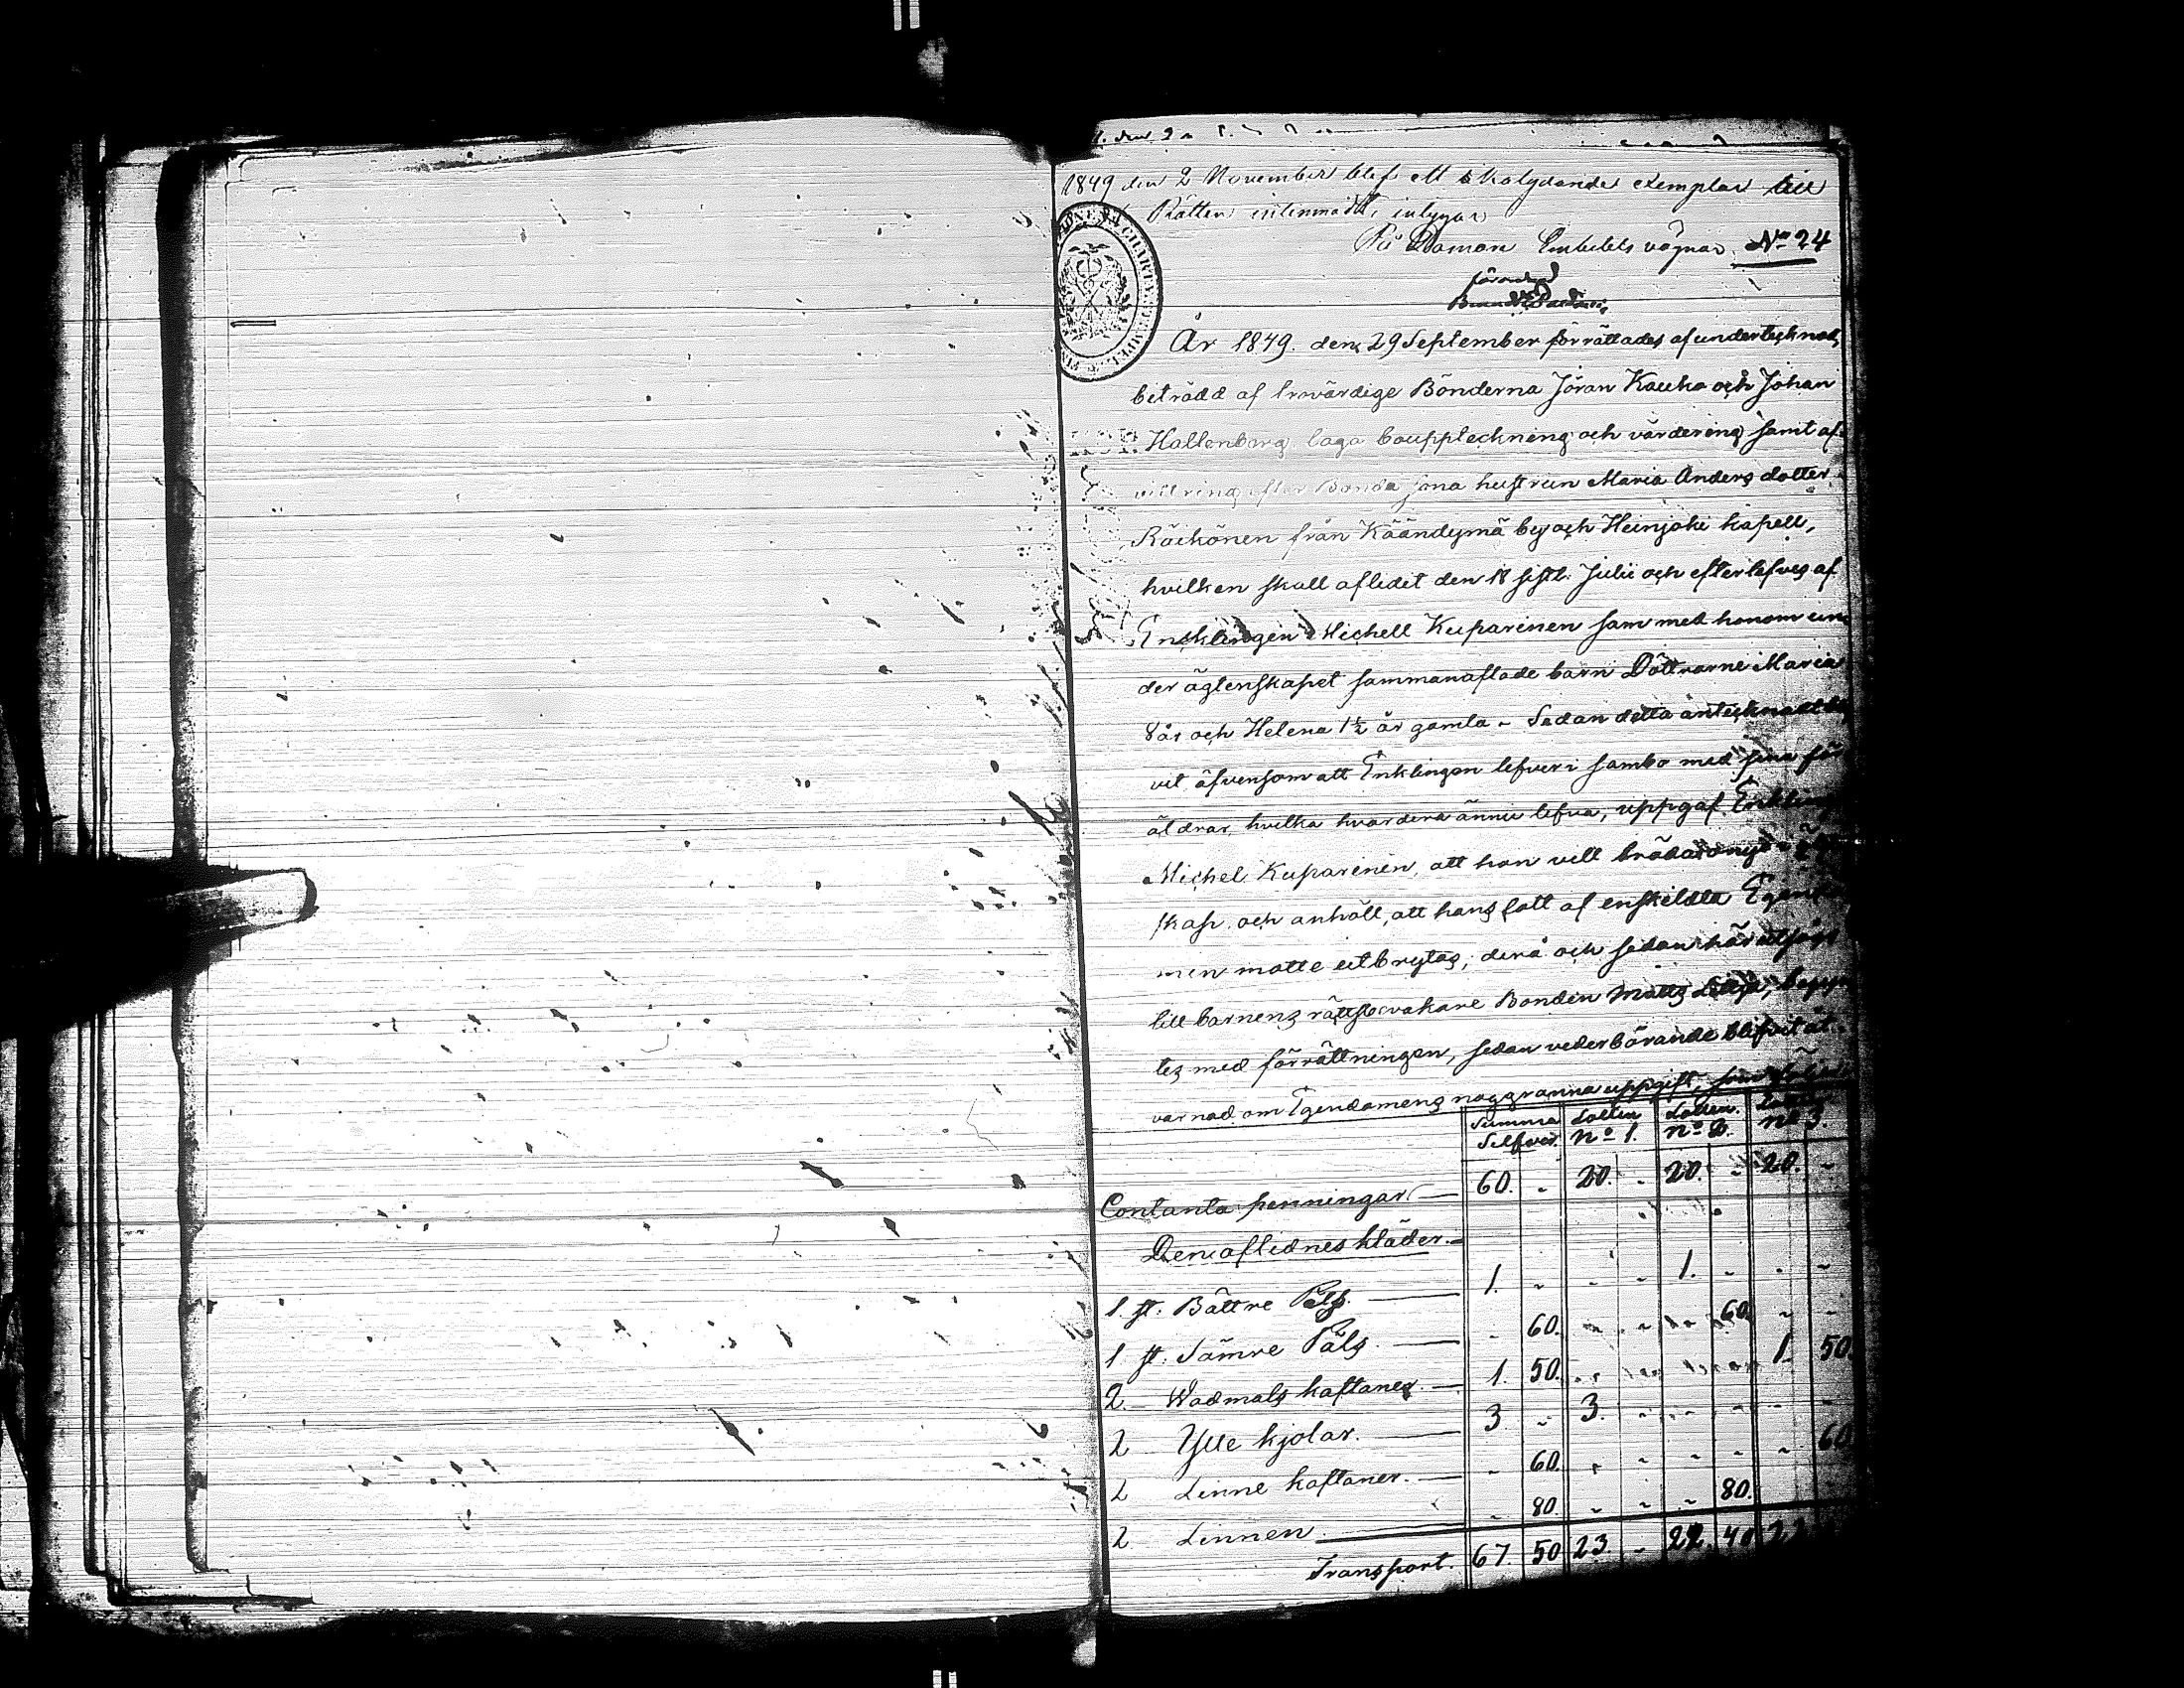 1849 den 2 November blef ett likalydande exemplar till
Rätten inlemnadt, intygar
På Domare Embetets vägnar. No 24
År 1849. den 29 September förrättades af undertecknad,
biträdd af trovärdige Bönderna Jöran Kauko och Johan
Hallenberg laga bouppteckning och värdering samt af-
vittring efter Bonda jona hustrun Maria Anders dotter
Räikönen från Käändymä by och Heinjoki kapell,
hvilken skall aflidet den 18 sistl. Julii och efterlefves af
Enklingen Michell Kuparinen sam med honom un-
der ägtenskapet sammanaflade barn Döttrarne Maria
8 år och Helena 1½ år gamla - Sedan detta antecknadt bli
vit äfvensom att Enklingen lefver i sambo med sina för
äldrar, hvilka hvardera ännu lefva, uppgaf Enklingen
Michel Kuparinen, att han vill träda i nytt
skap och anhöll, att hans lott af enskildta Egendo
men matte utbrytas, derå och sedan här
till barnens rättsbevakare Bonden Matts
tes med förrättningen, sedan vederbörande blifvit åt-
varnad om Egendomens noggranna uppgift, som följer
Summa Silfver. Lotten No 1. Lotten No 2. Lotten No 3.
Contanta penningar — 60. - 20. - 20. - 20. -
Den aflidnes kläder. -
1 st. Bättre Päls. — 1. - - - 1. - - -
1 st. Sämre Päls. — - 60. - - - 60. - -
2 Wadmals kaftaner. — 1. 50. - - - - 1. 50.
2 Ylle kjolar. — 3 - 3. - - - - -
2 Linne kaftaner. — - 60. - - - - - 60
2 Linnen. — - 80. - - - 80.
Transport. 67 50 23. - 22. 40